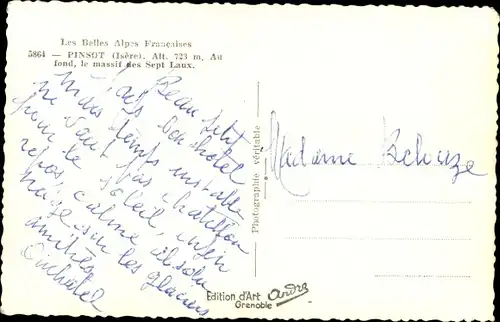 Les Belles Alpes Françaises
5864 — PINSOT (Isère). Alt. 723 m, Au
fond, le massif des Sept Laux.
Beau site
très bon hotel
mais temps instable
ne vaut pas Chatillon
pour le soleil, enfin
repos, calme absolu
neige sur les glaciers
amitiés
Photographie véritable
Madame
Edition d'Art
Grenoble
André